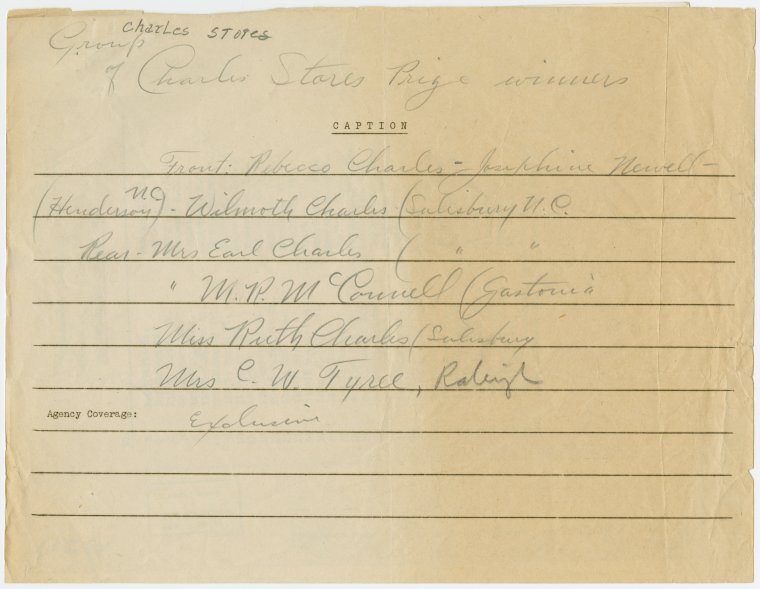 Charles Stores
Group
of Charles Stores Prize winners
CAPTION
Front: Rebecca Charles - Josephine Newell -
(Henderson N.C.) - Wilmoth Charles (Salisbury N.C.
Rear - Mrs Earl Charles ( " "
" M. R. McConnell (Gastonia
Miss Ruth Charles (Salisbury
Mrs C. W. Tyree, Raleigh
Agency Coverage:
Exclusive